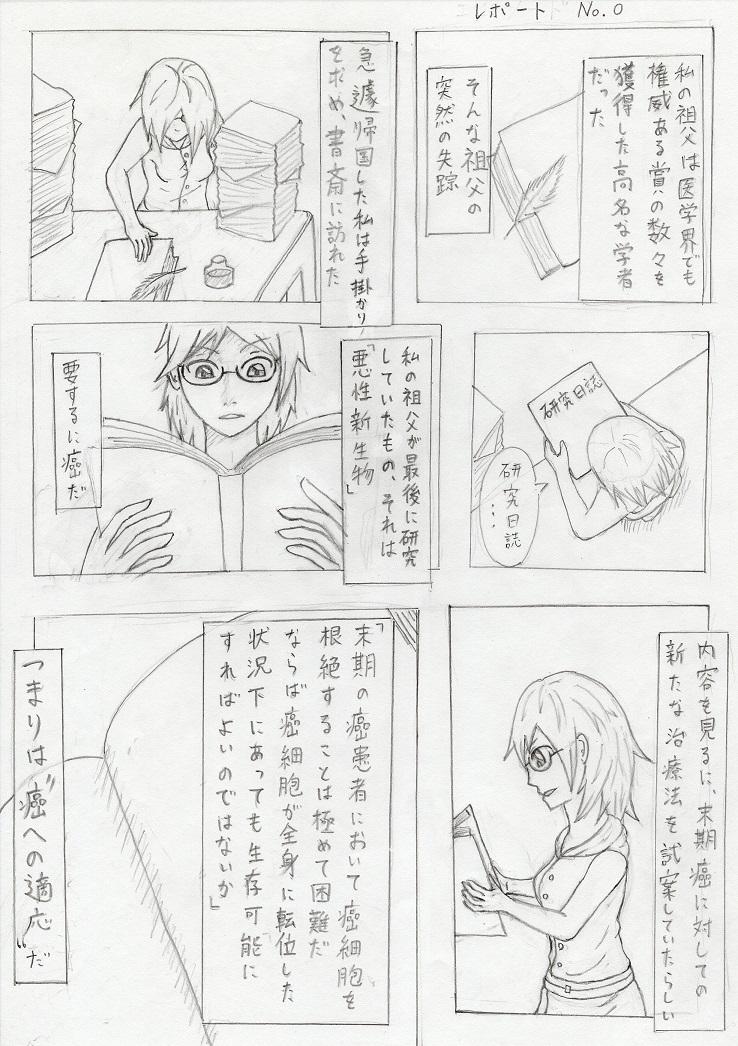 レポート No.0
私の祖父は医学界でも
権威ある賞の数々を
獲得した高名な学者
だった
そんな祖父の
突然の失踪
急遽帰国した私は手掛かり
を求め、書斎に訪れた
研究日誌
研究日誌
・・・
私の祖父が最後に研究
していたもの、それは
「悪性新生物」
要するに癌だ
内容を見るに、末期癌に対しての
新たな治療法を試案していたらしい
「末期の癌患者において癌細胞を
根絶することは極めて困難だ
ならば癌細胞が全身に転位した
状況下にあっても生存可能に
すればよいのではないか」
つまりは“癌”への適応”だ